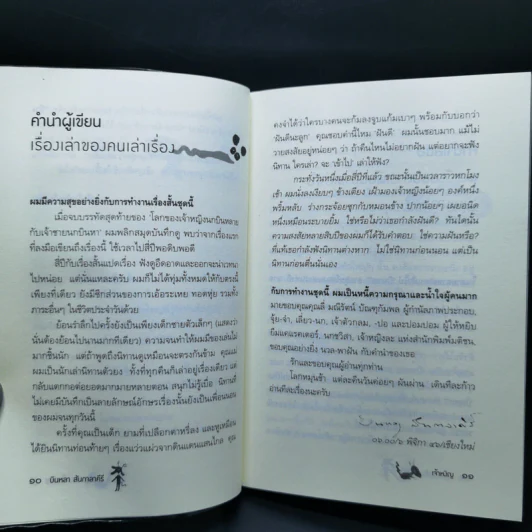 คำนำผู้เขียน
เรื่องเล่าของคนเล่าเรื่อง
ผมมีความสุขอย่างยิ่งกับการทำงานเรื่องสั้นชุดนี้
เมื่อจบบรรทัดสุดท้ายของ โลกของเจ้าหญิงนกบินหลาย
กับเจ้าชายนกบินหา' ผมพลิกสมุดบันทึกดู พบว่าจากเรื่องแรก
ที่ลงมือเขียนถึงเรื่องนี้ ใช้เวลาไปสี่ปีพอดีพอดี
สี่ปีกับเรื่องสั้นแปดเรื่อง ฟังดูอืดอาดและออกจะน่าเวทนา
ไปหน่อย แต่นั่นแหละครับ ผมก็ไม่ได้ทุ่มทั้งหมดให้กับตรงนี้
เพียงที่เดียว ยังมีซีกส่วนของการเอ้อระเหย ทอดหุ่ย รวมทั้ง
ภาระอื่นๆ ในชีวิตประจำวันด้วย
ย้อนรำลึกไปครั้งยังเป็นเพียงเด็กชายตัวเล็กๆ (แสดงว่า
นั่นต้องย้อนไปนานมากทีเดียว) ความจนทำให้ผมมีของเล่นไม่
มากชิ้นนัก แต่ถ้าพูดถึงนิทานดูเหมือนจะตรงกันข้าม คุณแม่
ผมเป็นนักเล่านิทานตัวยง ทั้งที่ทุกคืนก็เล่าอยู่เรื่องเดียว แต่
กลับแตกกอต่อยอดมากมายหลายตอน สนุกไม่รู้เบื่อ นิทานที่
ไม่เคยมีบันทึกเป็นลายลักษณ์อักษรเรื่องนั้นยังเป็นเพื่อนนอน
ของผมจนทุกวันนี้
ครั้งที่คุณเป็นเด็ก ยามที่เปลือกตาหรี่ลง และหูเหมือน
ได้ยินนิทานท่อนท้ายๆ เรื่องแว่วแผ่วจากดินแดนแสนไกล คุณ
๑๐ บินหลา สันกาลาคีรี
คงจำได้ว่าใครบางคนจะก้มลงจูบแก้มเบาๆ พร้อมกับบอกว่า
'ฝันดีนะลูก' คุณชอบคำนี้ไหม 'ฝันดี' ผมนั้นชอบมาก แม้ไม่
วายสงสัยอยู่หน่อยๆ ว่า ถ้าคืนไหนไม่อยากฝัน แต่อยากจะฟัง
นิทาน ใครเล่า? จะ 'เข้าไป' เล่าให้ฟัง?
กระทั่งวันหนึ่งเมื่อสี่ปีที่แล้ว ขณะนั้นเป็นเวลาราวหกโมง
เช้า ผมนั่งลงเงียบๆ ข้างเตียง เฝ้ามองเจ้าหญิงน้อยๆ องค์หนึ่ง
พริ้มหลับ ร่างกระจ้อยซุกกับหมอนข้าง ปากน้อยๆ เผยอนิด
หนึ่งเหมือนระบายยิ้ม ใช่หรือไม่ว่าเธอกำลังฝันดี? ทันใดนั้น
ความสงสัยหลายสิบปีของผมก็ได้รับคำตอบ ใช่ความฝันหรือ?
ที่แท้เธอกำลังฟังนิทานต่างหาก ไม่ใช่นิทานก่อนนอน แต่เป็น
นิทานก่อนตื่นนั่นเอง
กับการทำงานชุดนี้ ผมเป็นหนี้ความกรุณาและน้ำใจผู้คนมาก
รักและขอบคุณผู้อ่านทุกท่าน
โลกหมุนช้า แต่ละคืนวันค่อยๆ ผันผ่าน เดินทีละก้าว
อ่านทีละเรื่องนะครับ
๑๑